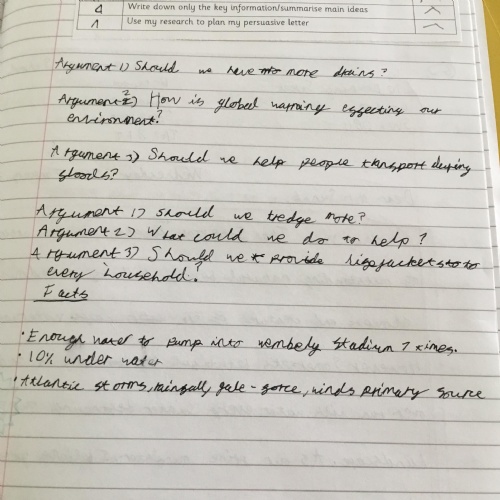 4 Write down only the key information/summarise main ideas
1 Use my research to plan my persuasive letter
Argument 1) Should we have more drains?
Argument 2) How is global warning effecting our
environment?
Argument 3) Should we help people transport during
floods?
Argument 1) Should we tredge more?
Argument 2) What could we do to help?
Argument 3) Should we provide lifejackets to
every household?
Facts
• Enough water to pump into wembely stadium 7 times.
• 10% under water
• Atlantic storms, rainfall, gale-force, winds primary source